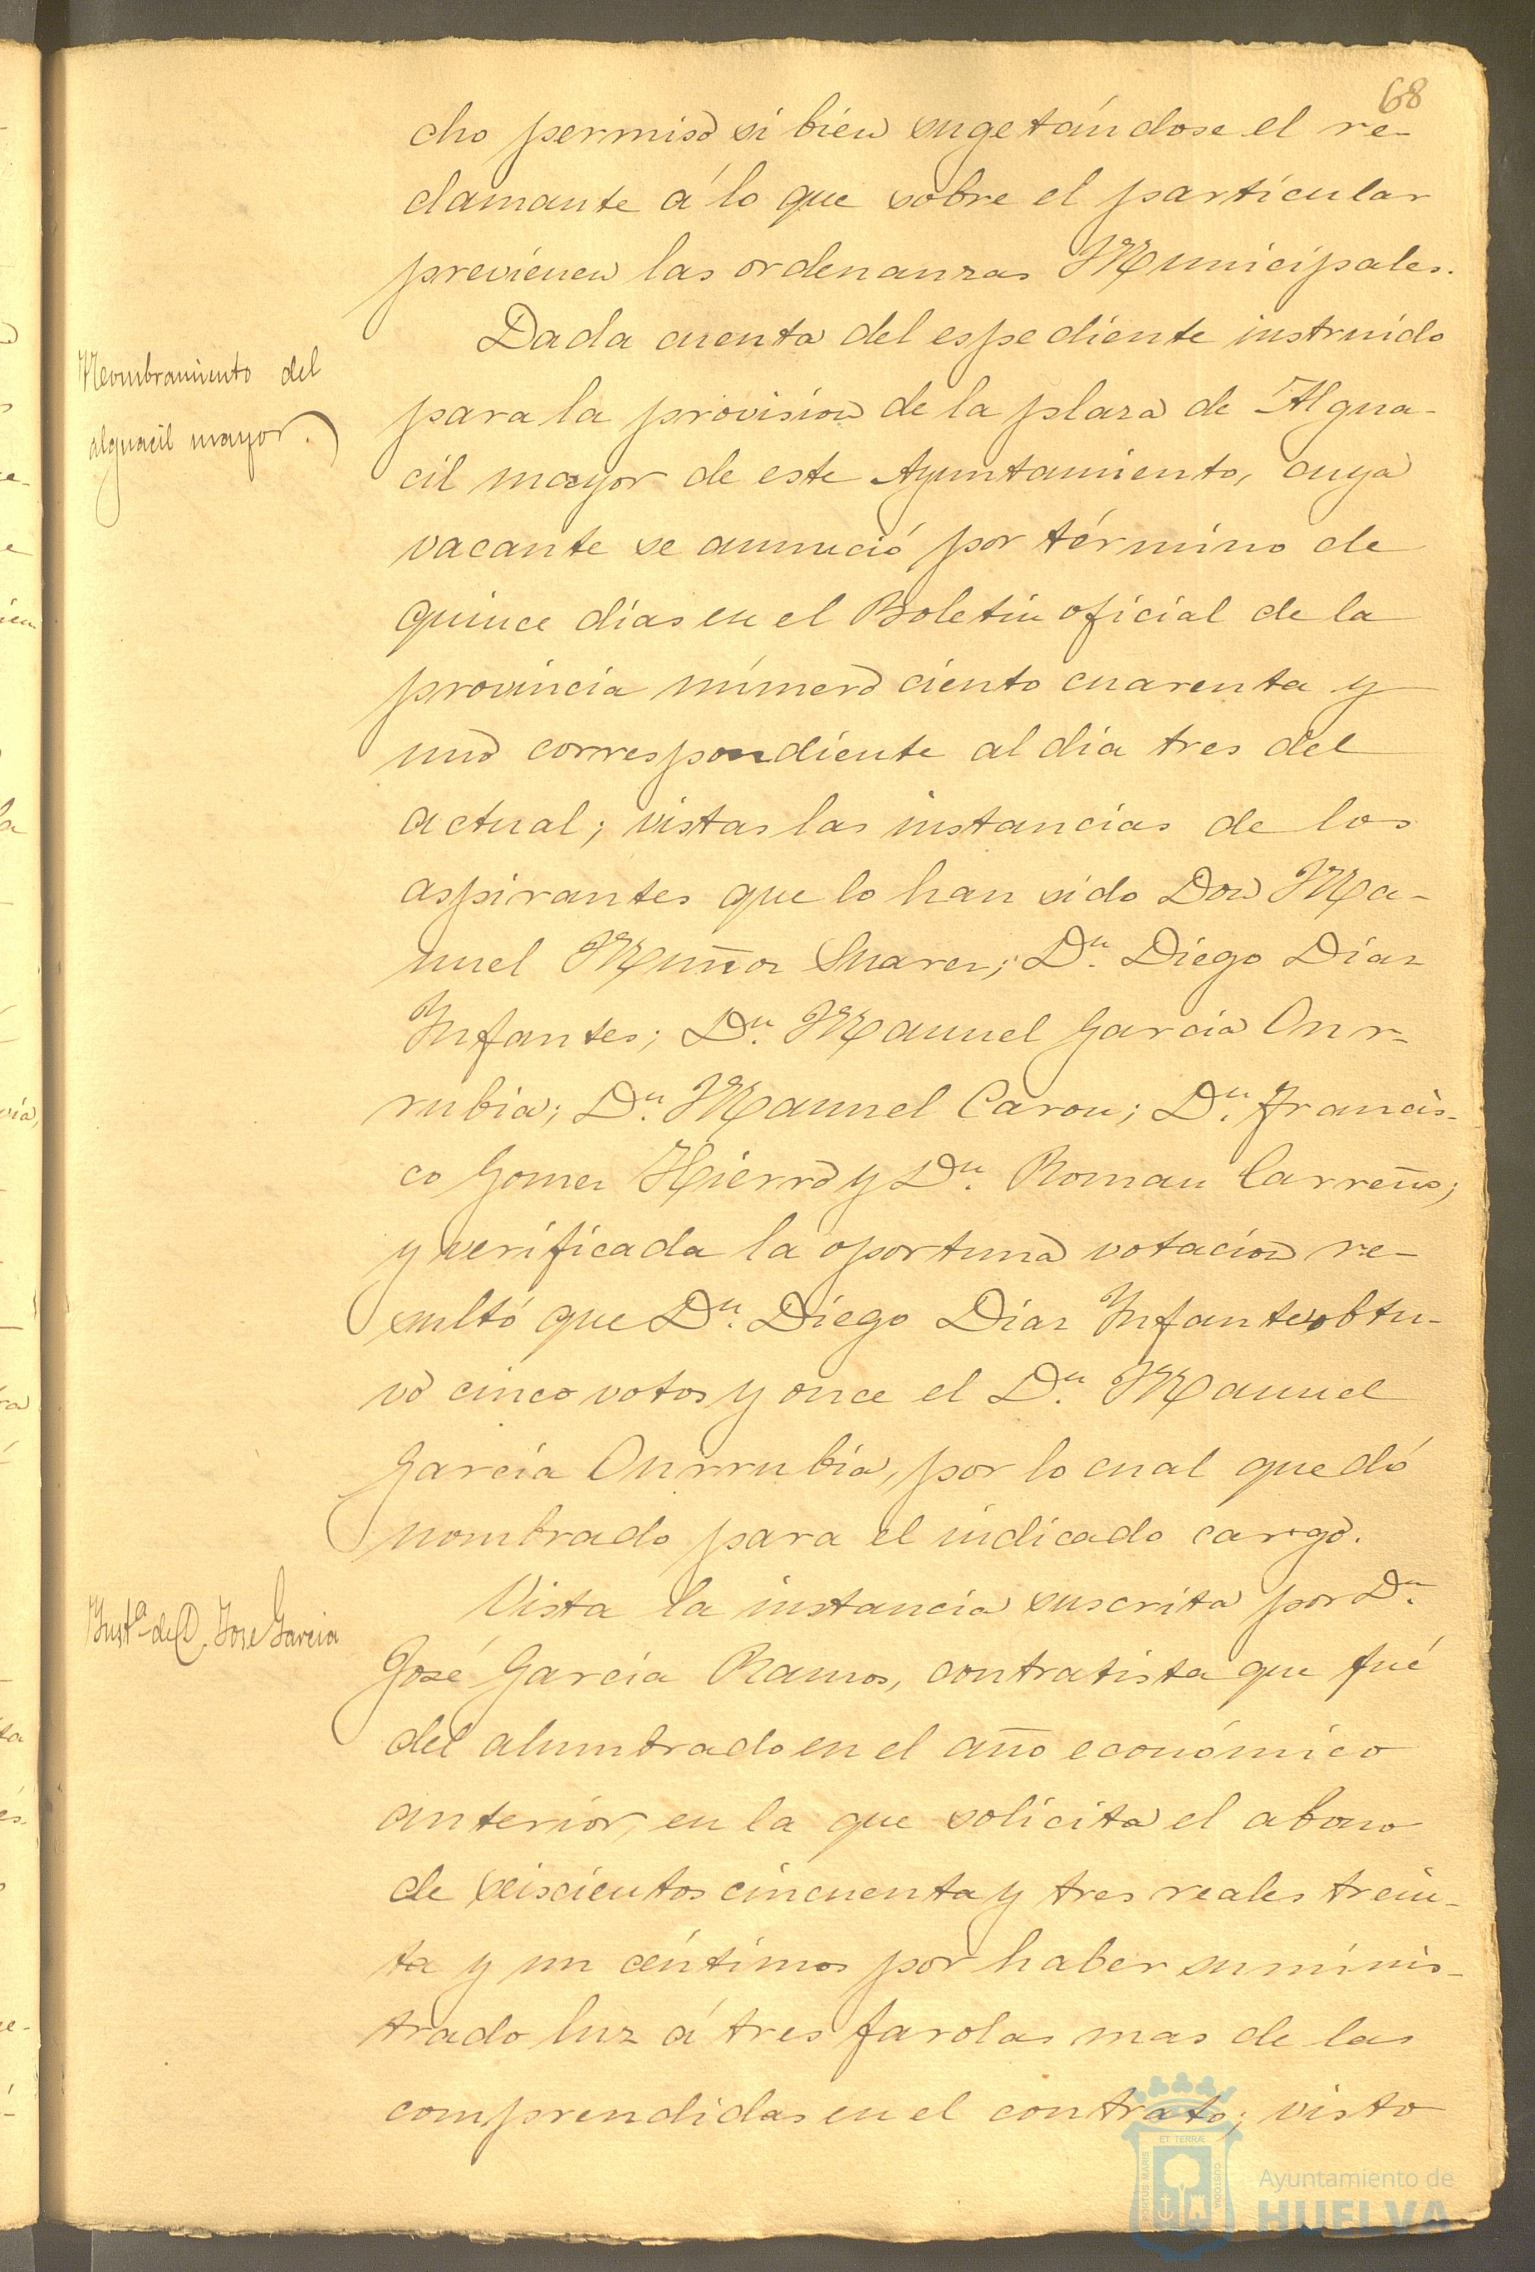 68
cho permiso si bien sugetándose el re-
clamante á lo que sobre el particular
previenen las ordenanzas Municipales.
Nombramiento del
alguacil mayor.
Dada cuenta del espediente instruido
para la provision de la plaza de Algua-
cil mayor de este Ayuntamiento, cuya
vacante se anunció por término de
quince días en el Boletin oficial de la
provincia número ciento cuarenta y
uno correspondiente al dia tres del
actual; vistas las instancias de los
aspirantes que lo han sido Don Ma-
nuel Muñoz Suarez; Dn. Diego Diaz
Infantes; Dn. Manuel Garcia Onr-
rubia; Dn. Manuel Caron; Dn. Francis-
co Gomez Hierro y Dn. Roman Carreño;
y verificada la oportuna votacion re-
sultó que Dn. Diego Diaz Infantes obtu-
vo cinco votos y once el Dn. Manuel
García Onrrubia, por lo cual quedó
nombrado para el indicado cargo.
Insta. de D. Jose Garcia
Vista la instancia suscrita por Dn.
José García Ramos, contratista que fué
del alumbrado en el año económico
anterior, en la que solicita el abono
de seiscientos cincuenta y tres reales trein-
ta y un céntimos por haber suminis-
trado luz á tres farolas mas de las
comprendidas en el contrato; visto
PORTUS MARIS ET TERRÆ CUSTODIA
Ayuntamiento de
HUELVA